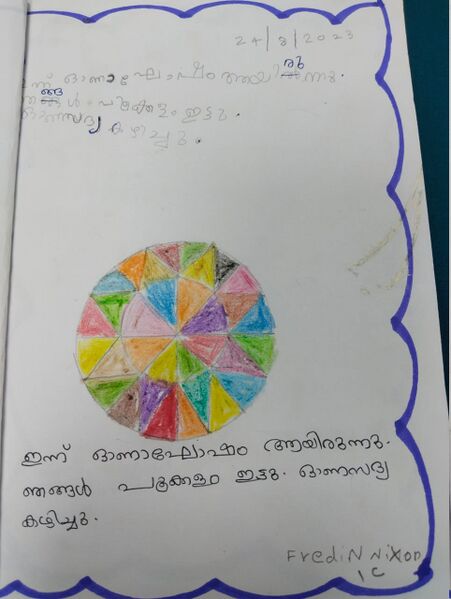 24/8/2023
ഇന്ന് ഓണാഘോഷം ആയിരുന്നു.
ഞങ്ങൾ പൂക്കളം ഇട്ടു.
ഓണസദ്യ കഴിച്ചു.
ഇന്ന് ഓണാഘോഷം ആയിരുന്നു.
ഞങ്ങൾ പൂക്കളം ഇട്ടു. ഓണസദ്യ
കഴിച്ചു.
FrediN Nixon
1 C